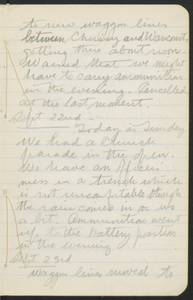 to new waggon lines
between Chuignes and
getting there about noon.
Warned that we might
have to carry ammunition
in the evening. Cancelled
at the last moment.
Sept 22nd
Today is Sunday
We had a Church
parade in the open.
We have an officers
mess in a trench which
is not uncomfortable though
the rain comes in on us
a bit. Ammunition went
up to the battery position
in the evening
Sept 23rd
waggon lines moved to